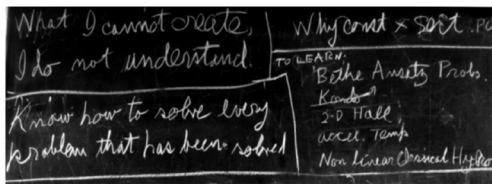 What I cannot create,
I do not understand.
Know how to solve every
problem that has been solved
Why const × sort .PO
TO LEARN:
Bethe Ansatz Probs.
Kondo
2-D Hall
accel. Temp
Non Linear Classical Hydro